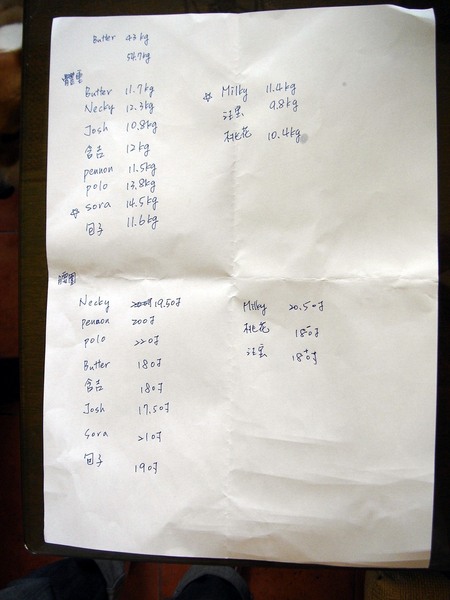 Butter 43kg
54.7kg
體重
Butter 11.7kg
Necky 12.3kg
Josh 10.8kg
含吉 12kg
pennon 11.5kg
polo 13.8kg
☆ sora 14.5kg
包子 11.6kg
☆ Milky 11.4kg
9.8kg
桃花 10.4kg
腰圍
Necky 19.5吋
pennon 20吋
polo 22吋
Butter 18吋
含吉 18吋
Josh 17.5吋
Sora 21吋
包子 19吋
Milky 20.5吋
桃花 18吋
18吋